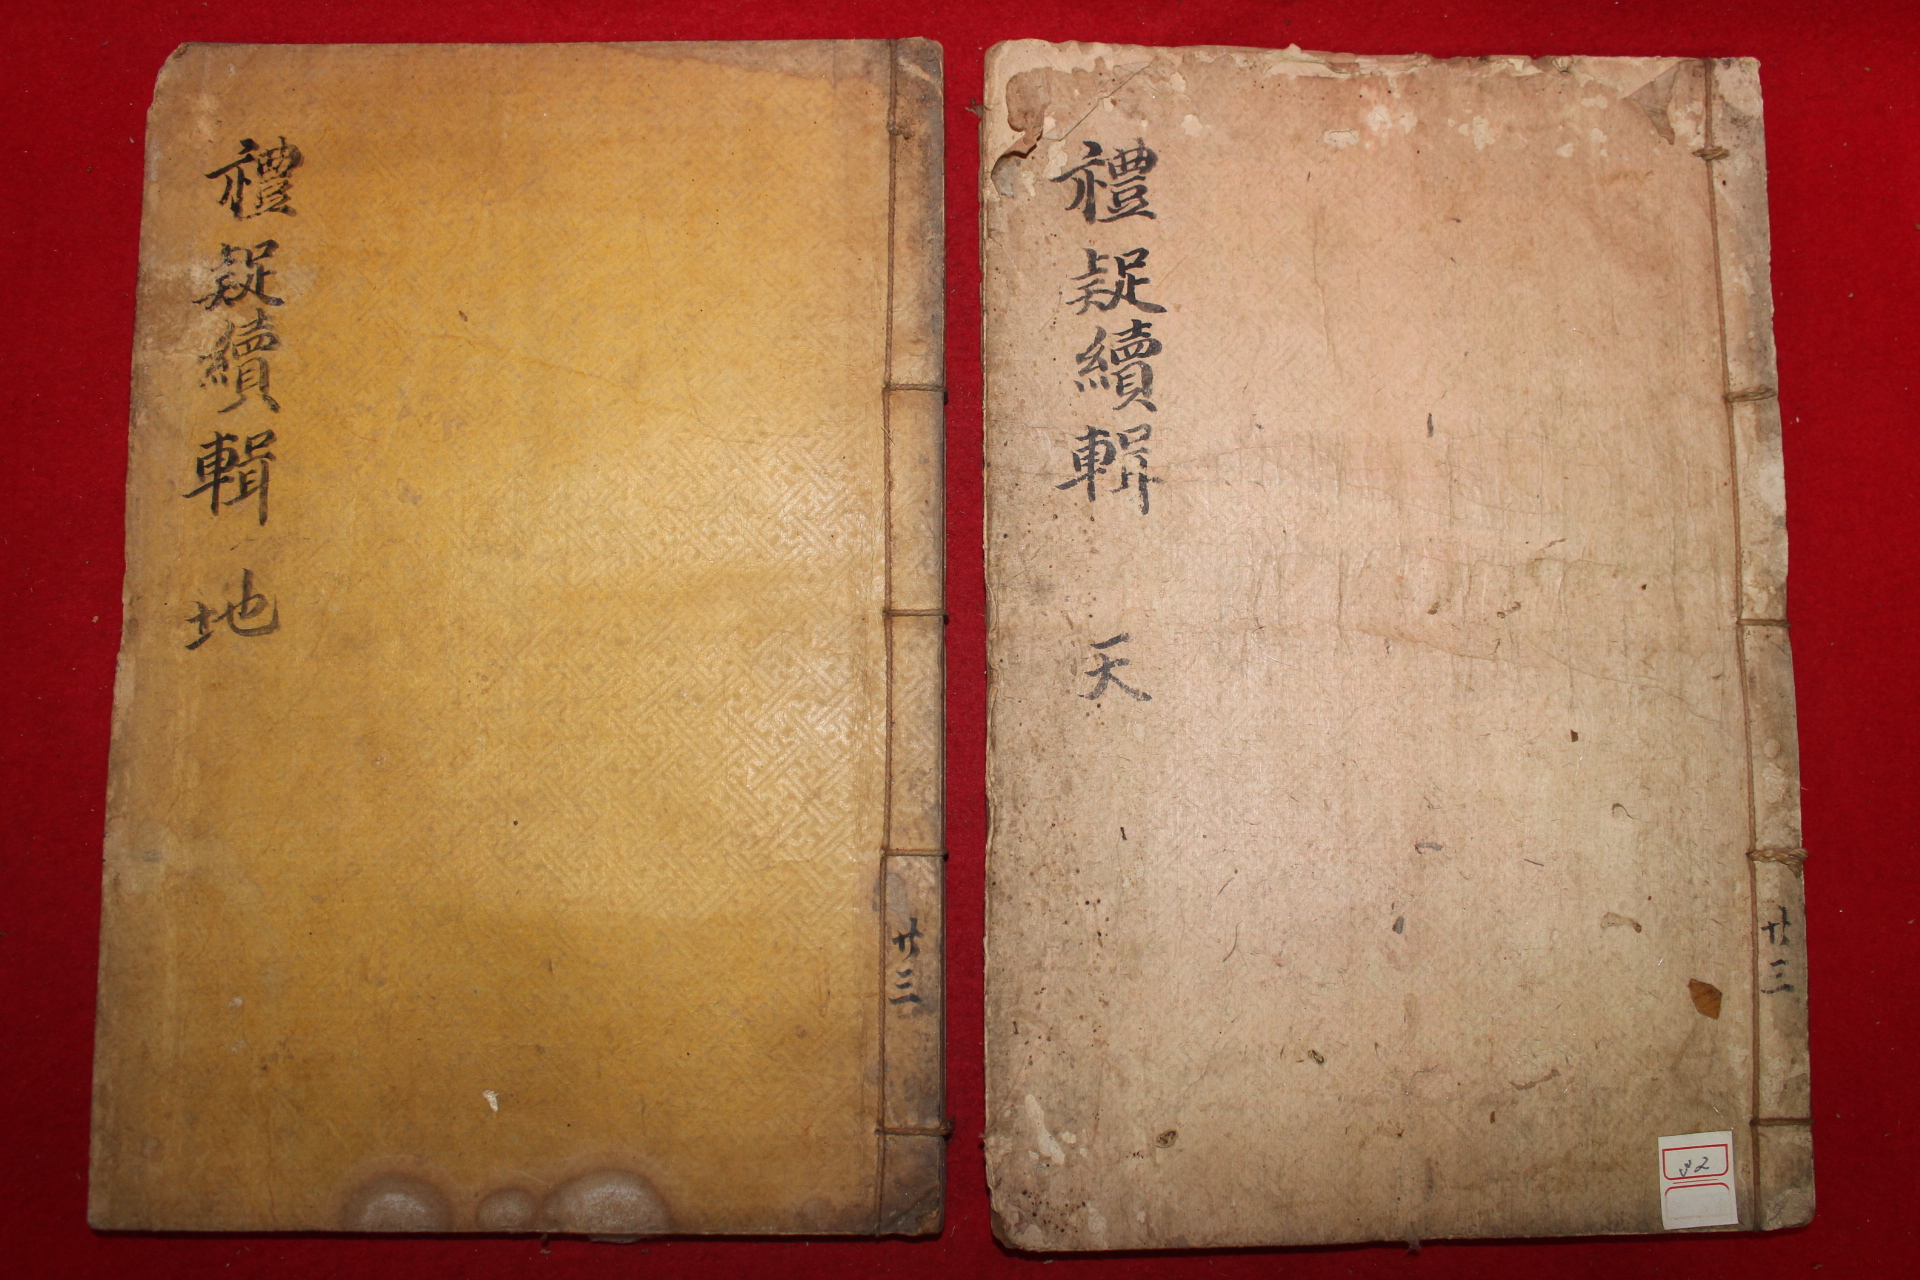 禮疑續輯 地
廿三
禮疑續輯 天
廿三